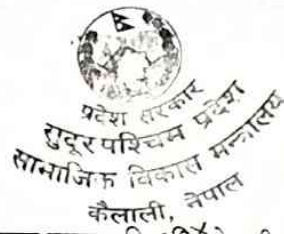 प्रदेश सरकार
सुदूरपश्चिम प्रदेश
सामाजिक विकास मन्त्रालय
कैलाली, नेपाल